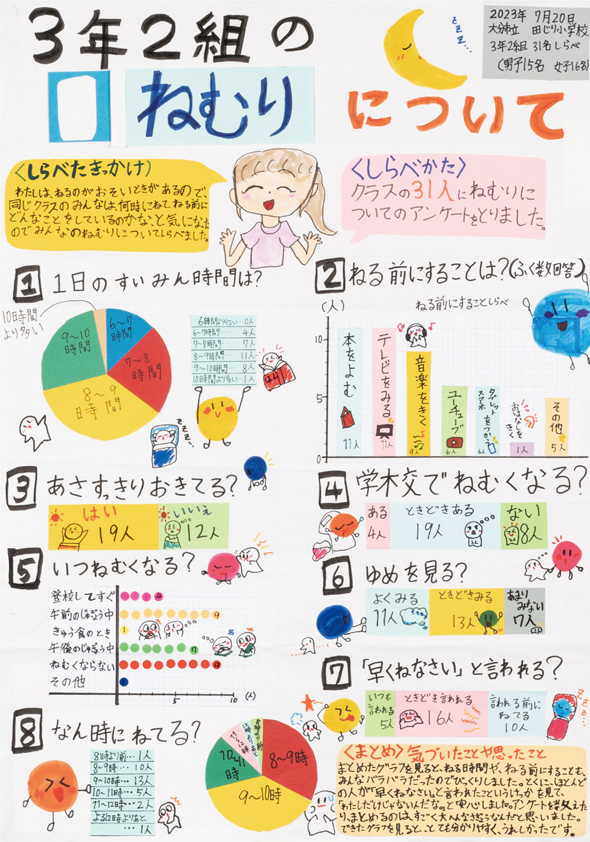 3年2組の
ねむり について
2023年 7月20日
大分市立 田じり小学校
3年2組 31名 しらべ
(男子15名 女子16名)
zzz...
<しらべたきっかけ>
わたしは、ねるのがおそいときがあるので、
同じクラスのみんなは、何時にねて、ねる前に
どんなことをしているのかな、と気になった
のでみんなのねむりについてしらべました。
<しらべかた>
クラスの31人にねむりに
ついてのアンケートをとりました。
1 1日のすいみん時間は?
10時間より多い
6〜7時間
7〜8時間
8〜9時間
9〜10時間
6時間より少ない…0人
6〜7時間 4人
7〜8時間 7人
8〜9時間 11人
9〜10時間 8人
10時間より多い 1人
zzz...
2 ねる前にすることは?(ふく数回答)
(人)
ねる前にすることしらべ
10
5
0
本をよむ 11人
テレビをみる 11人
音楽をきく 9人
ユーチューブ 6人
スマホ タブレットをつかう
おはなしをきく 1人
その他 5人
3 あさすっきりおきてる?
はい 19人
いいえ 12人
4 学校でねむくなる?
ある 4人
ときどきある 19人
ない 8人
5 いつねむくなる?
登校してすぐ 4
午前のじゅぎょう中 9
きゅう食のとき 1
午後のじゅぎょう中 7
ねむくならない 9
その他
0 5 10 (人)
6 ゆめを見る?
よくみる 11人
ときどきみる 13人
あまりみない 7人
7 「早くねなさい」と言われる?
いつも言われる 5人
ときどき言われる 16人
言われる前にねてる 10人
8 なん時にねてる?
8時より前… 1人
8〜9時… 10人
9〜10時… 13人
10〜11時… 5人
11〜12時… 2人
よる12時よりあと
… 1人
8〜9時
9〜10時
10〜11時
<まとめ>気づいたことや思ったこと
まとめたグラフを見ると、ねる時間や、ねる前にすることも、
みんなバラバラだったのでびっくりしました。とくに、ほとんど
の人が「早くねなさい。」と言われたことというけっかを見て
「わたしだけじゃないんだなぁ。」と安心しました。アンケートを考えた
り、まとめるのは、すごく大へんなさぎょうなんだと思いました。
できたグラフを見ると、とても分かりやすく、うれしかったです。